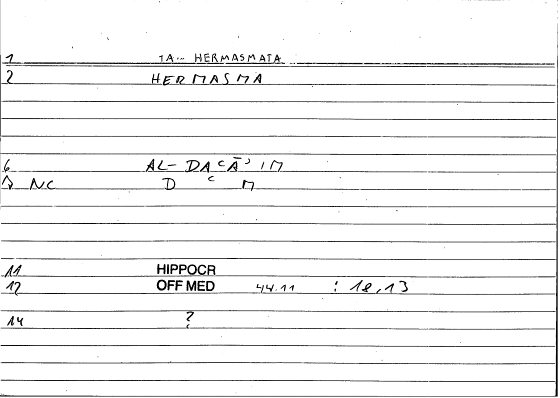 1 TA-- HERMASMATA
2 HERMASMA
6 AL-DAʿĀʾIM
NC D ʿ M
11 HIPPOCR
12 OFF MED 44.11 : 18,13
14 ?